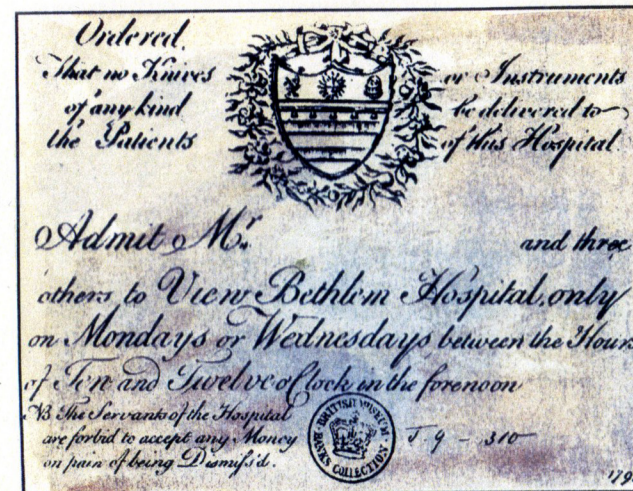 Ordered,
That no Knives or Instruments
of any kind be delivered to
the Patients of this Hospital
Admit Mr. and three
others, to View Bethlem Hospital, only
on Mondays or Wednesdays between the Hour
of Ten and Twelve o'Clock in the forenoon
NB The Servants of the Hospital
are forbid to accept any Money
on pain of being Dismiss'd.
BRITISH MUSEUM
BANKS COLLECTION
J. 9 - 310
179